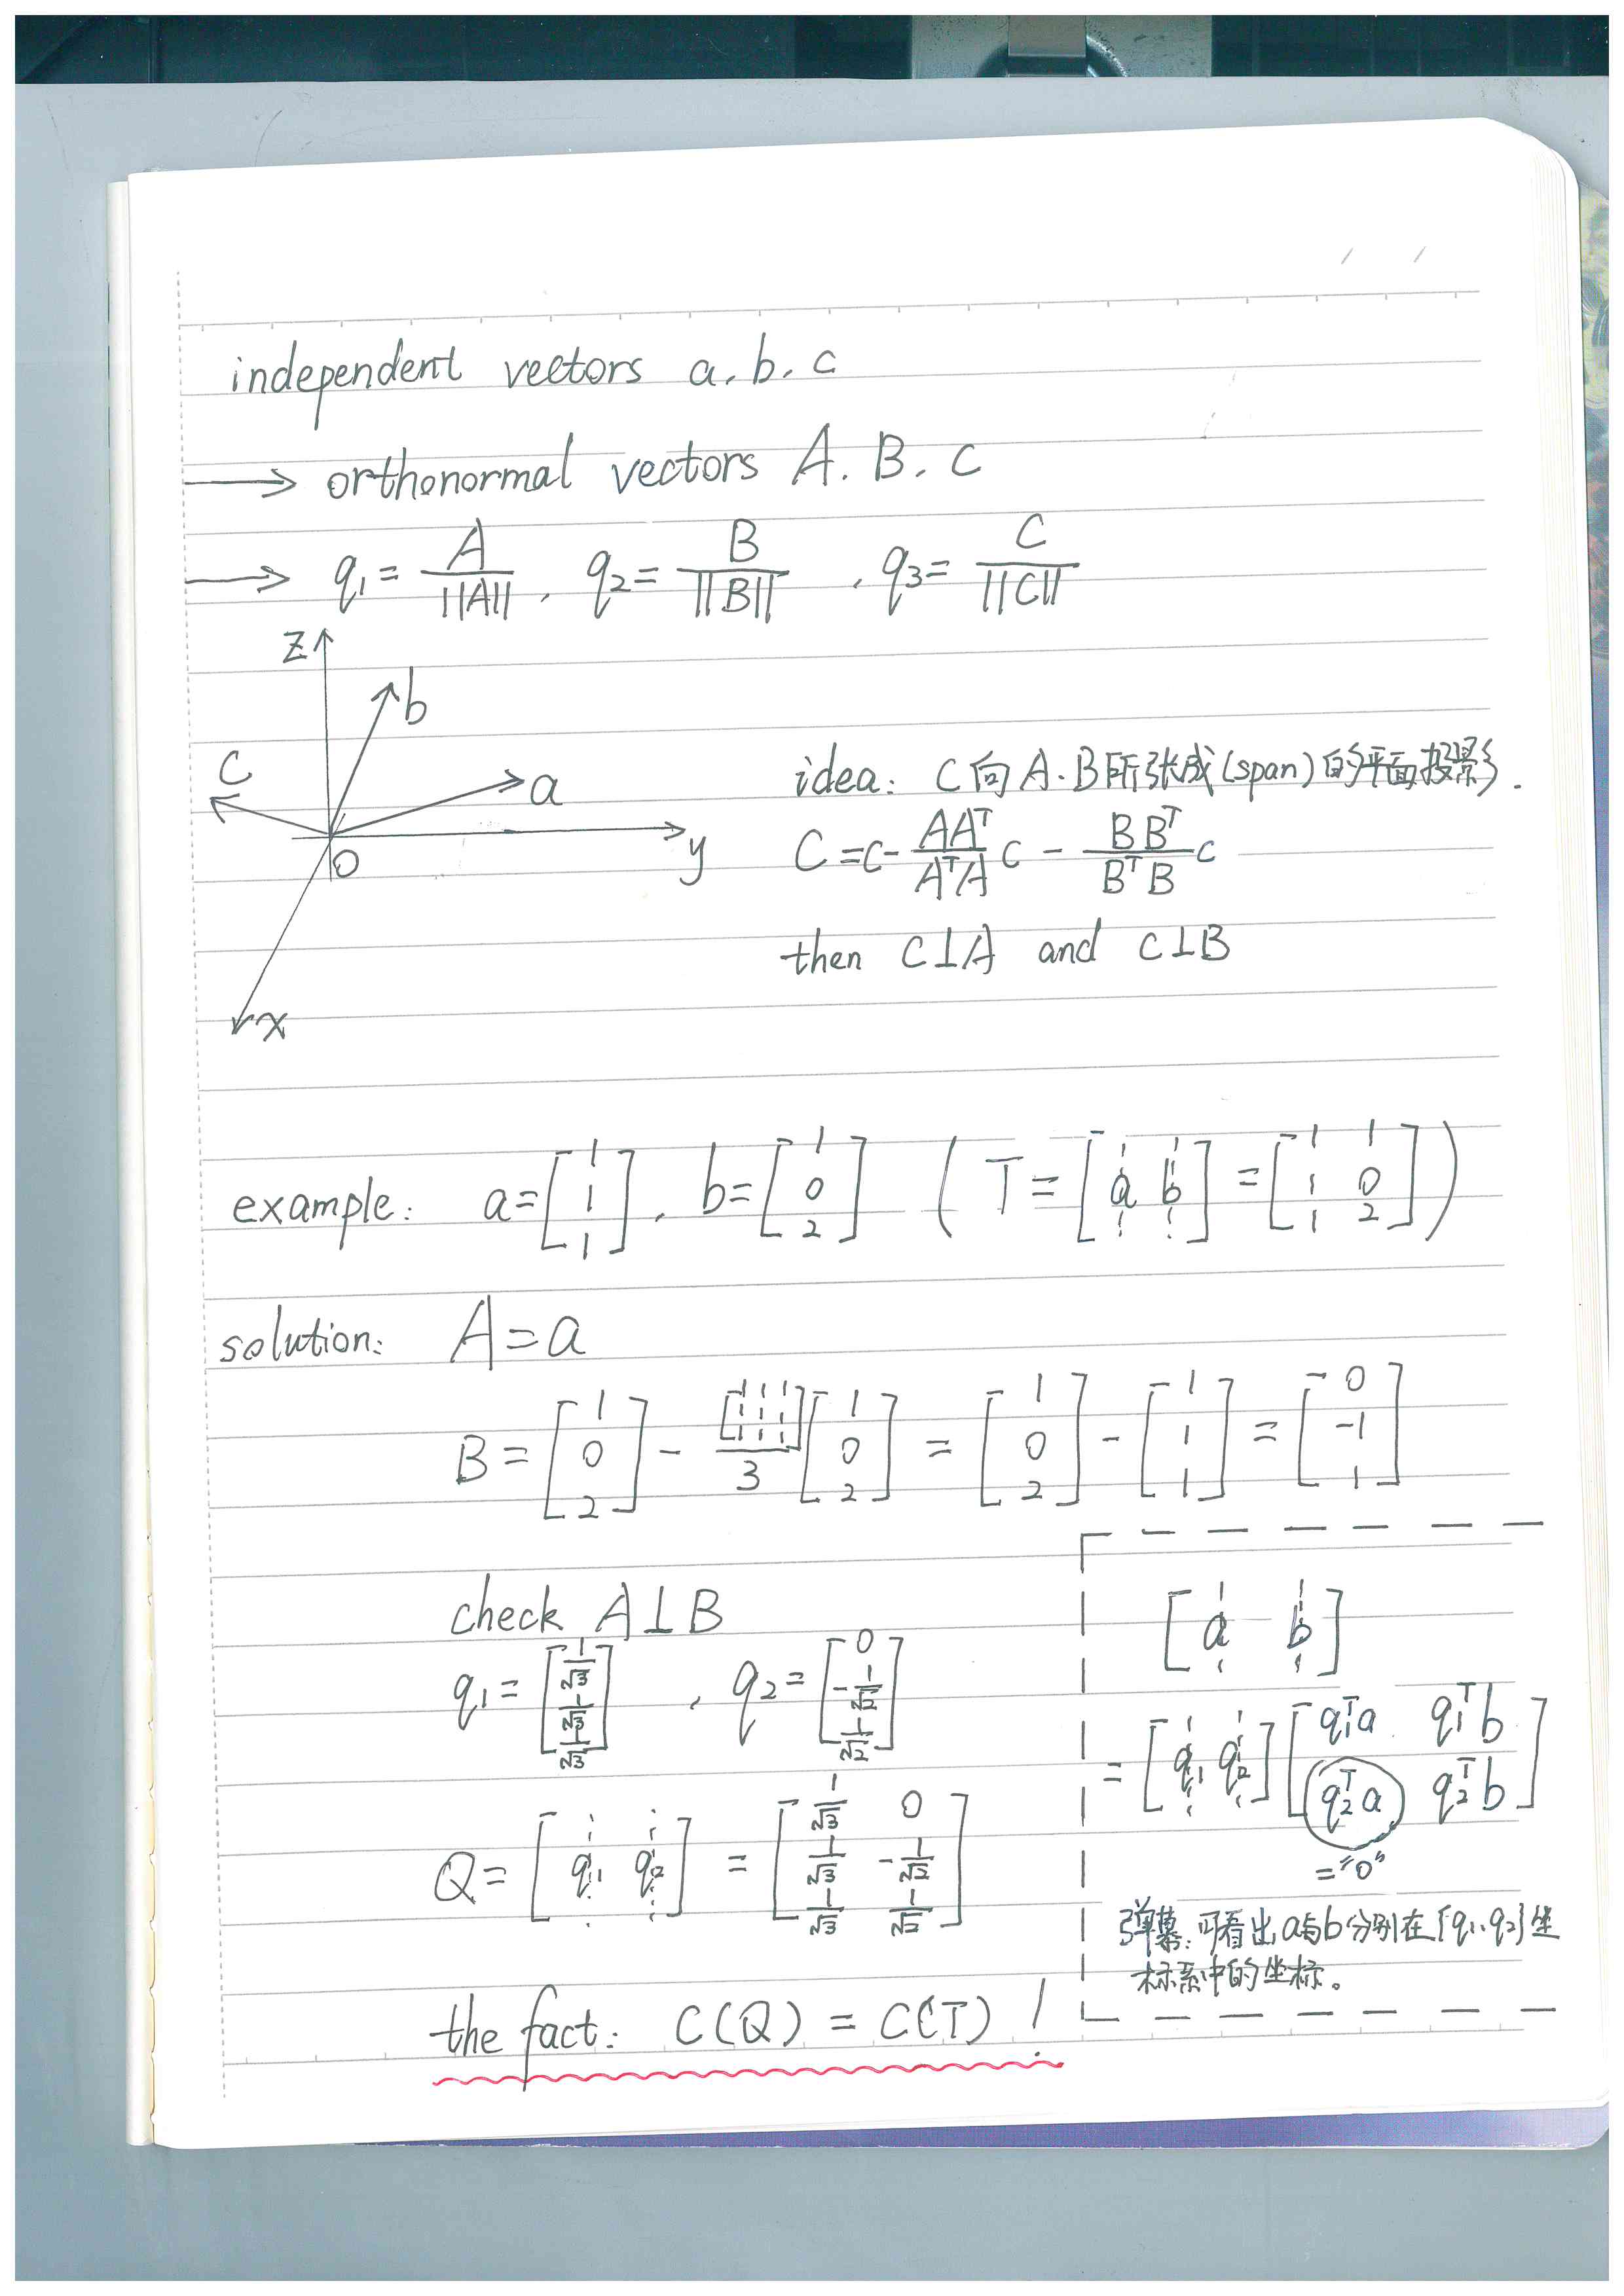 independent vectors a. b. c
→ orthonormal vectors A. B. C
→ q₁ = A/||A|| , q₂ = B/||B|| , q₃ = C/||C||
z
b
c
a
O
y
x
idea: C向A.B所张成(span)的平面投影.
C = c - (AAᵀ/AᵀA) c - (BBᵀ/BᵀB) c
then C⊥A and C⊥B
example: a = [1 1 1] , b = [1 0 2] ( T = [a b] = [1 1; 1 0; 1 2] )
solution: A = a
B = [1 0 2] - [1 1 1; 1 1 1; 1 1 1]/3 [1 0 2] = [1 0 2] - [1 1 1] = [0 -1 1]
check A⊥B
q₁ = [1/√3 1/√3 1/√3] , q₂ = [0 -1/√2 1/√2]
Q = [q₁ q₂] = [1/√3 0; 1/√3 -1/√2; 1/√3 1/√2]
the fact: C(Q) = C(T) !
[a b]
= [q₁ q₂] [q₁ᵀa q₁ᵀb; q₂ᵀa q₂ᵀb]
= "0"
弹幕: 可看出a与b分别在{q₁,q₂}坐
标系中的坐标。